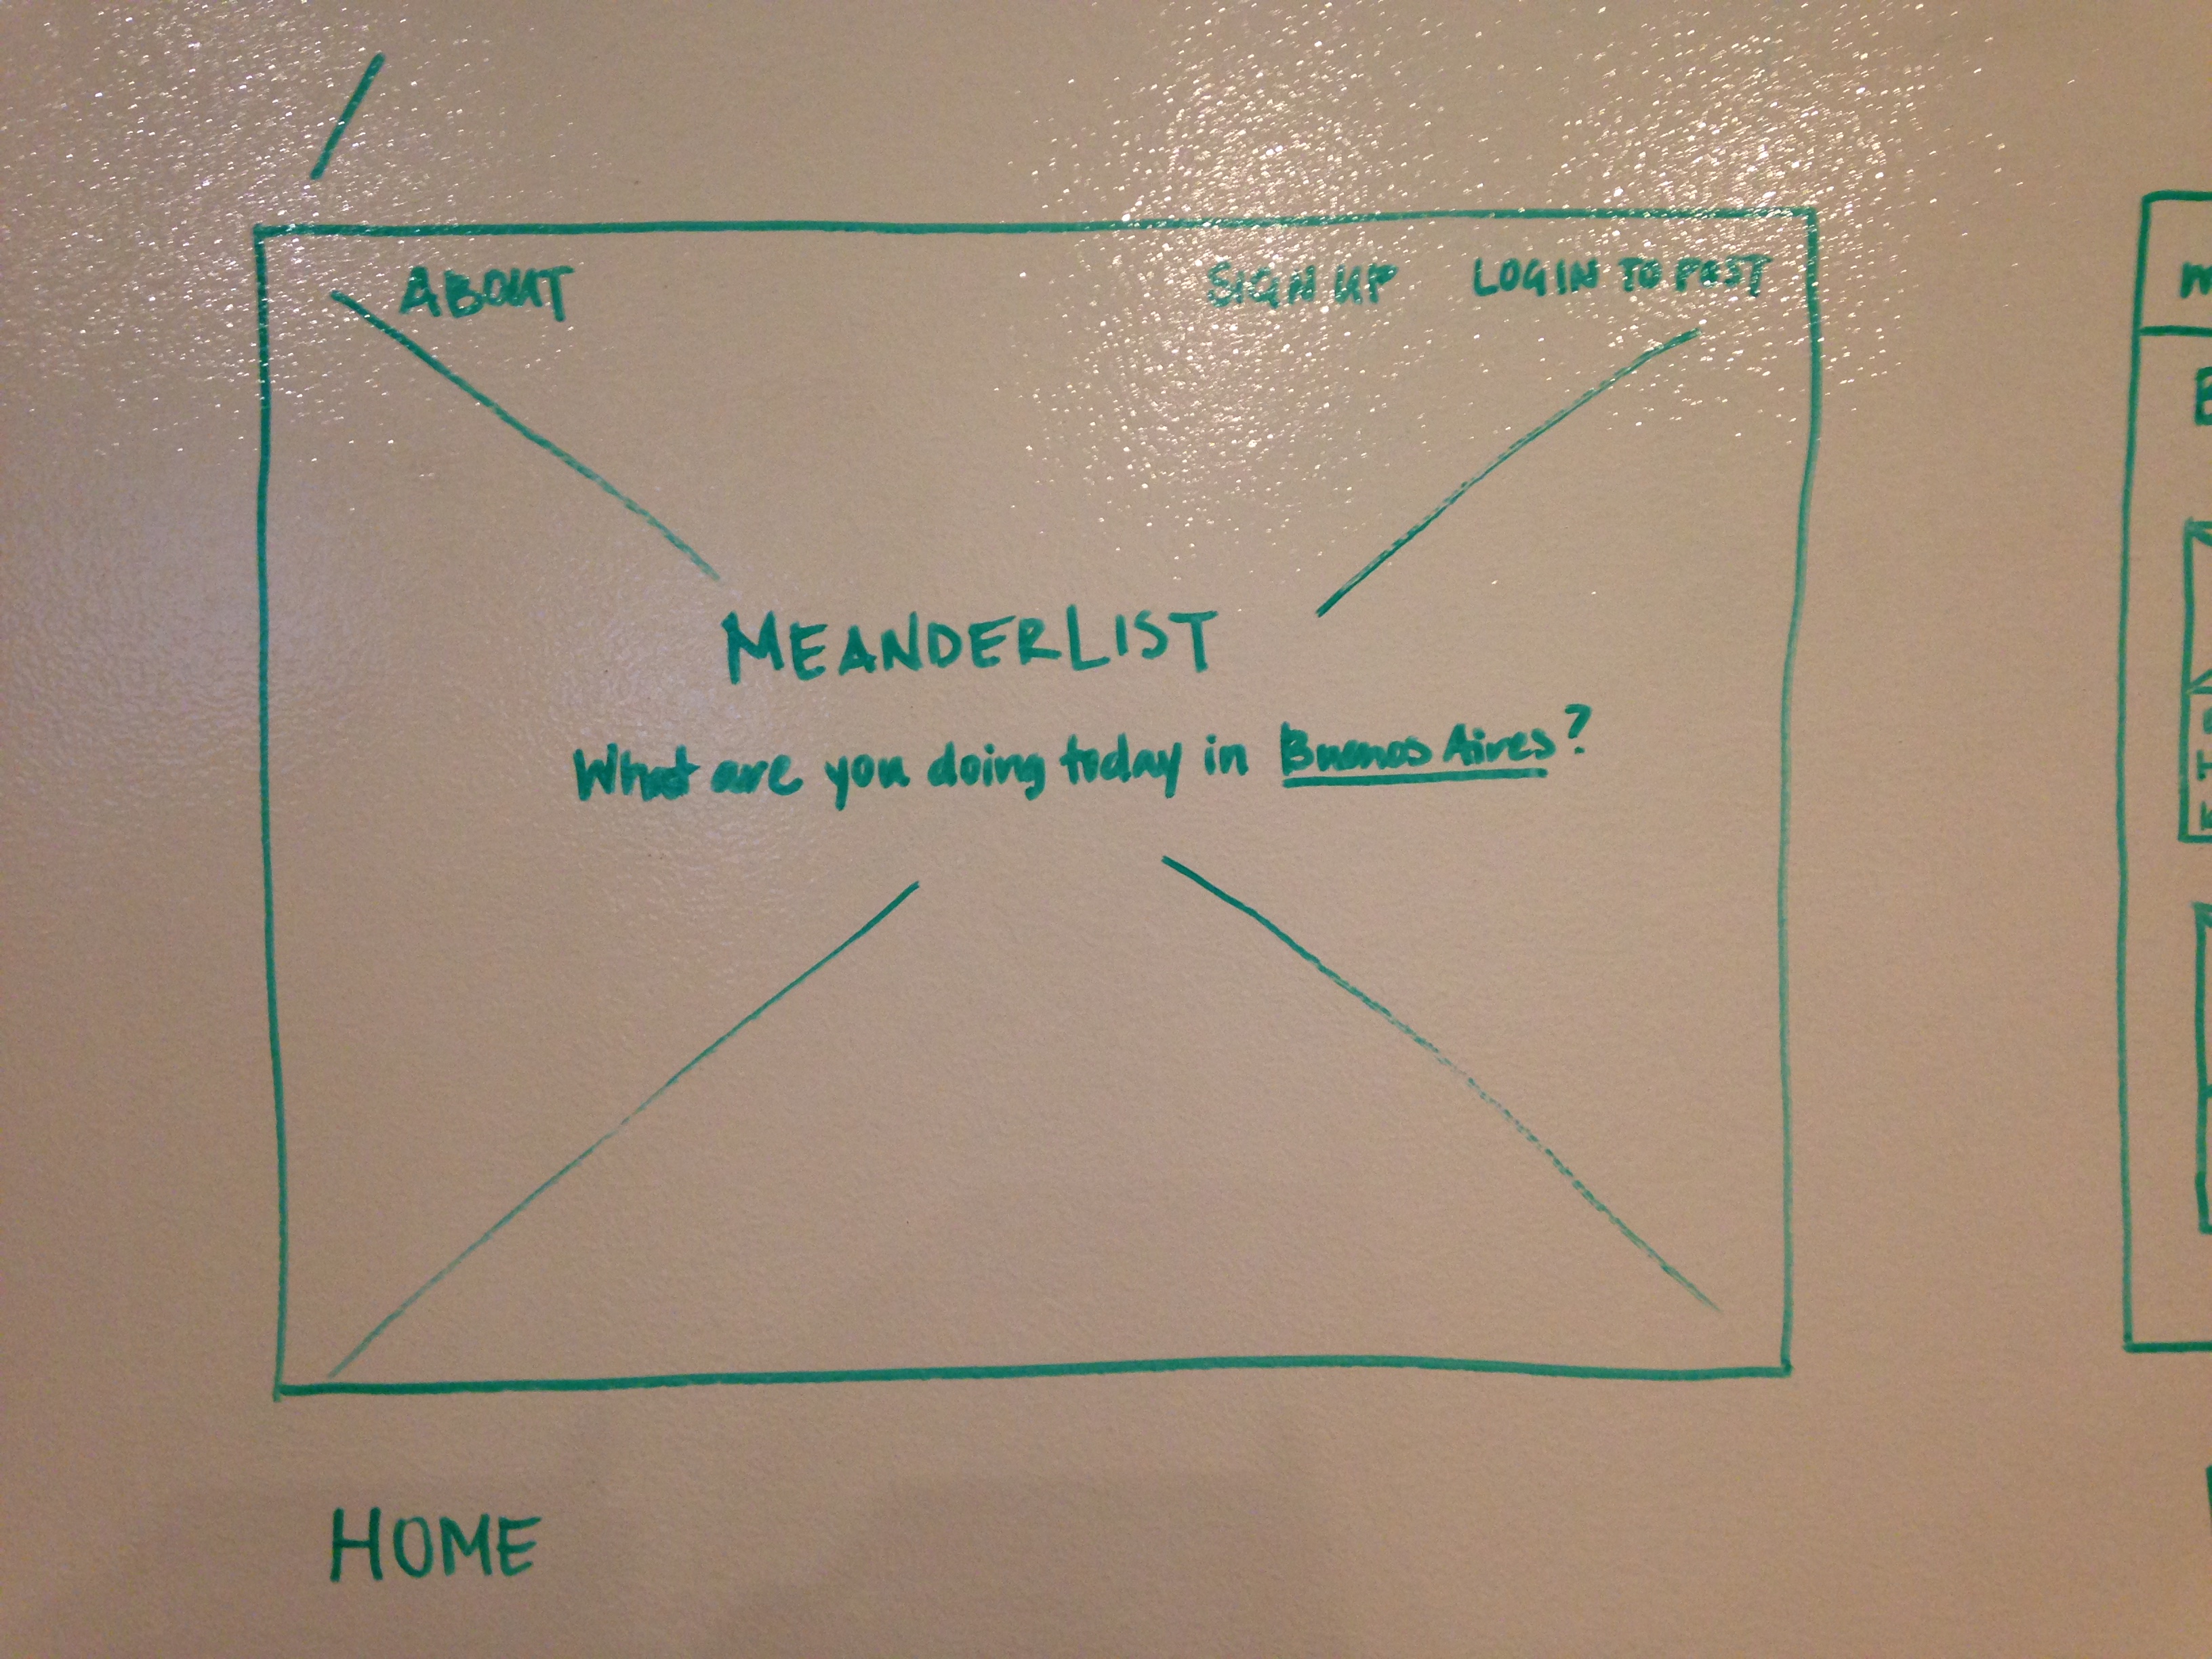 ABOUT SIGN UP LOGIN TO POST
MEANDERLIST
What are you doing today in Buenos Aires?
HOME